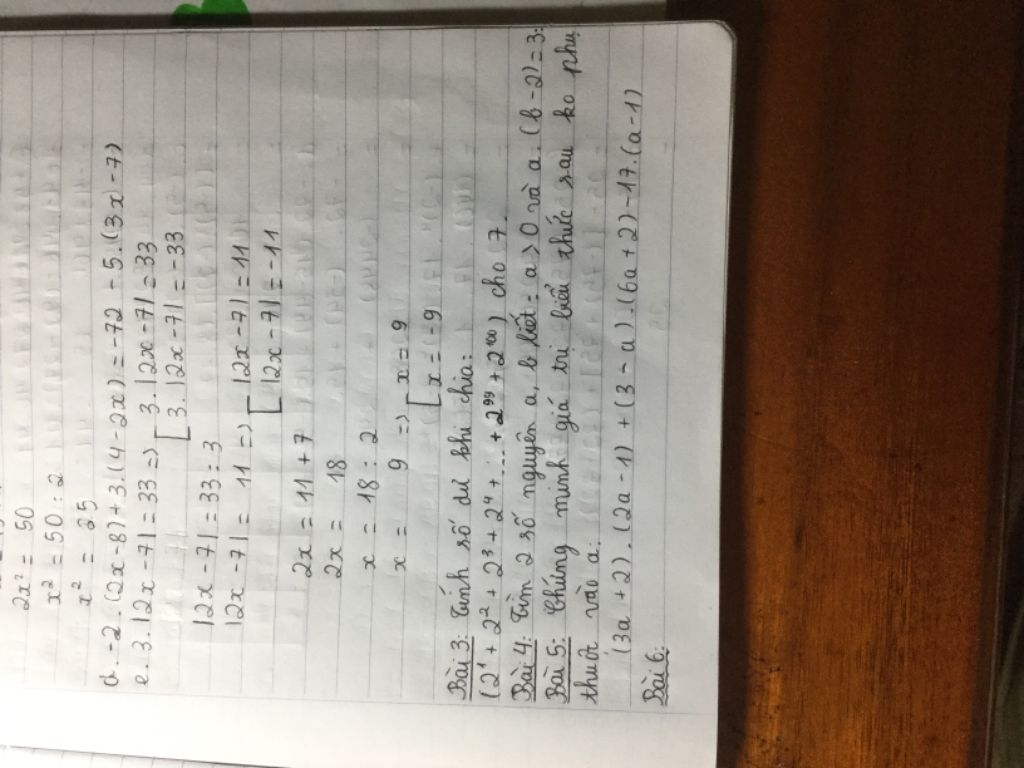 2x² = 50
x² = 50 : 2
x² = 25
d. -2. (2x-8) + 3.(4-2x) = -72 - 5.(3x-7)
e. 3.|2x-7| = 33 => [3. |2x-7| = 33
[3. |2x-7| = -33
|2x-7| = 33 : 3
|2x-7| = 11 => [|2x-7| = 11
[|2x-7| = -11
2x = 11 + 7
2x = 18
x = 18 : 2
x = 9 => [x = 9
[x = -9
Bài 3: Tính số dư khi chia:
(2¹ + 2² + 2³ + 2⁴ + ..... + 2⁹⁹ + 2¹⁰⁰) cho 7.
Bài 4: Tìm 2 số nguyên a, b biết: a > 0 và a. (b - 2) = 3.
Bài 5: Chứng minh giá trị biểu thức sau ko phụ
thuộc vào a:
(3a + 2). (2a - 1) + (3 - a). (6a + 2) - 17. (a - 1)
Bài 6: